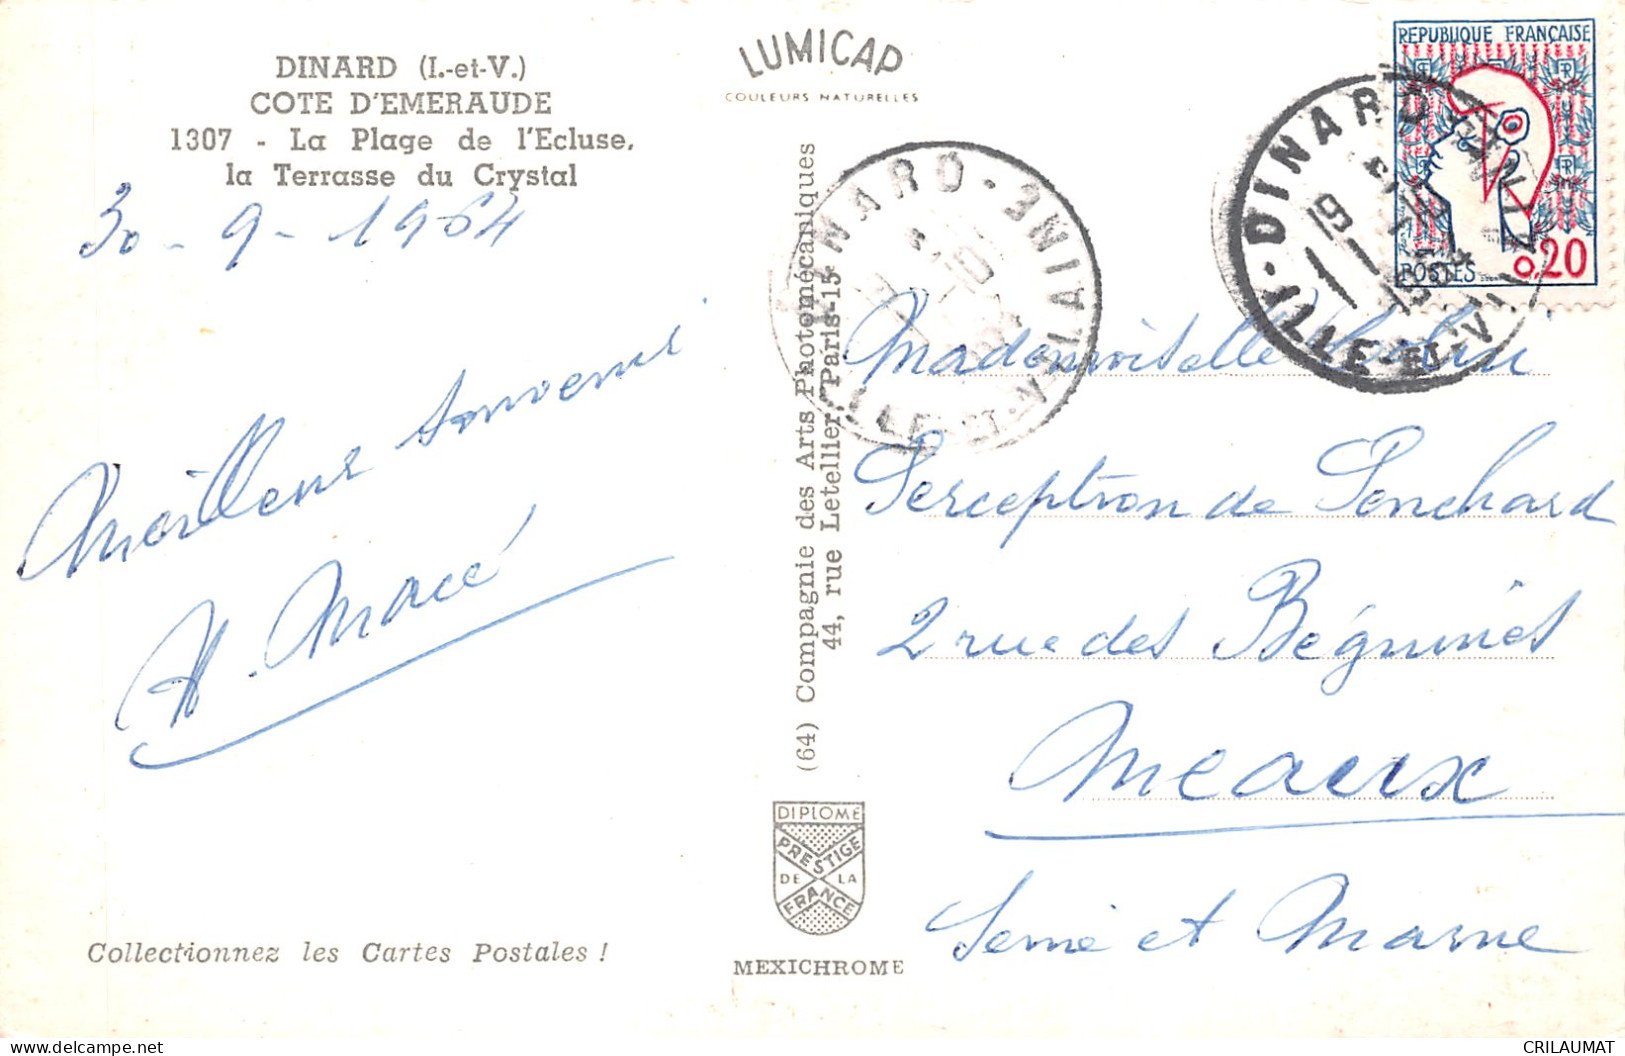 DINARD (I.-et-V.)
COTE D'EMERAUDE
1307 - La Plage de l'Ecluse,
la Terrasse du Crystal
30 - 9 - 1964
Meilleur souvenir
H. Macé
Collectionnez les Cartes Postales !
LUMICAP
COULEURS NATURELLES
(64) Compagnie des Arts Photomécaniques
44, rue Letellier, Paris-15
DIPLOME
PRESTIGE
DE LA
FRANCE
MEXICHROME
REPUBLIQUE FRANÇAISE
POSTES 0,20
DINARD
ILLE-ET-VILAINE
DINARD
ILLE-ET-VILAINE
Mademoiselle
Perception de Penchard
2 rue des Béguines
Meaux
Seine et Marne
CRILAUMAT